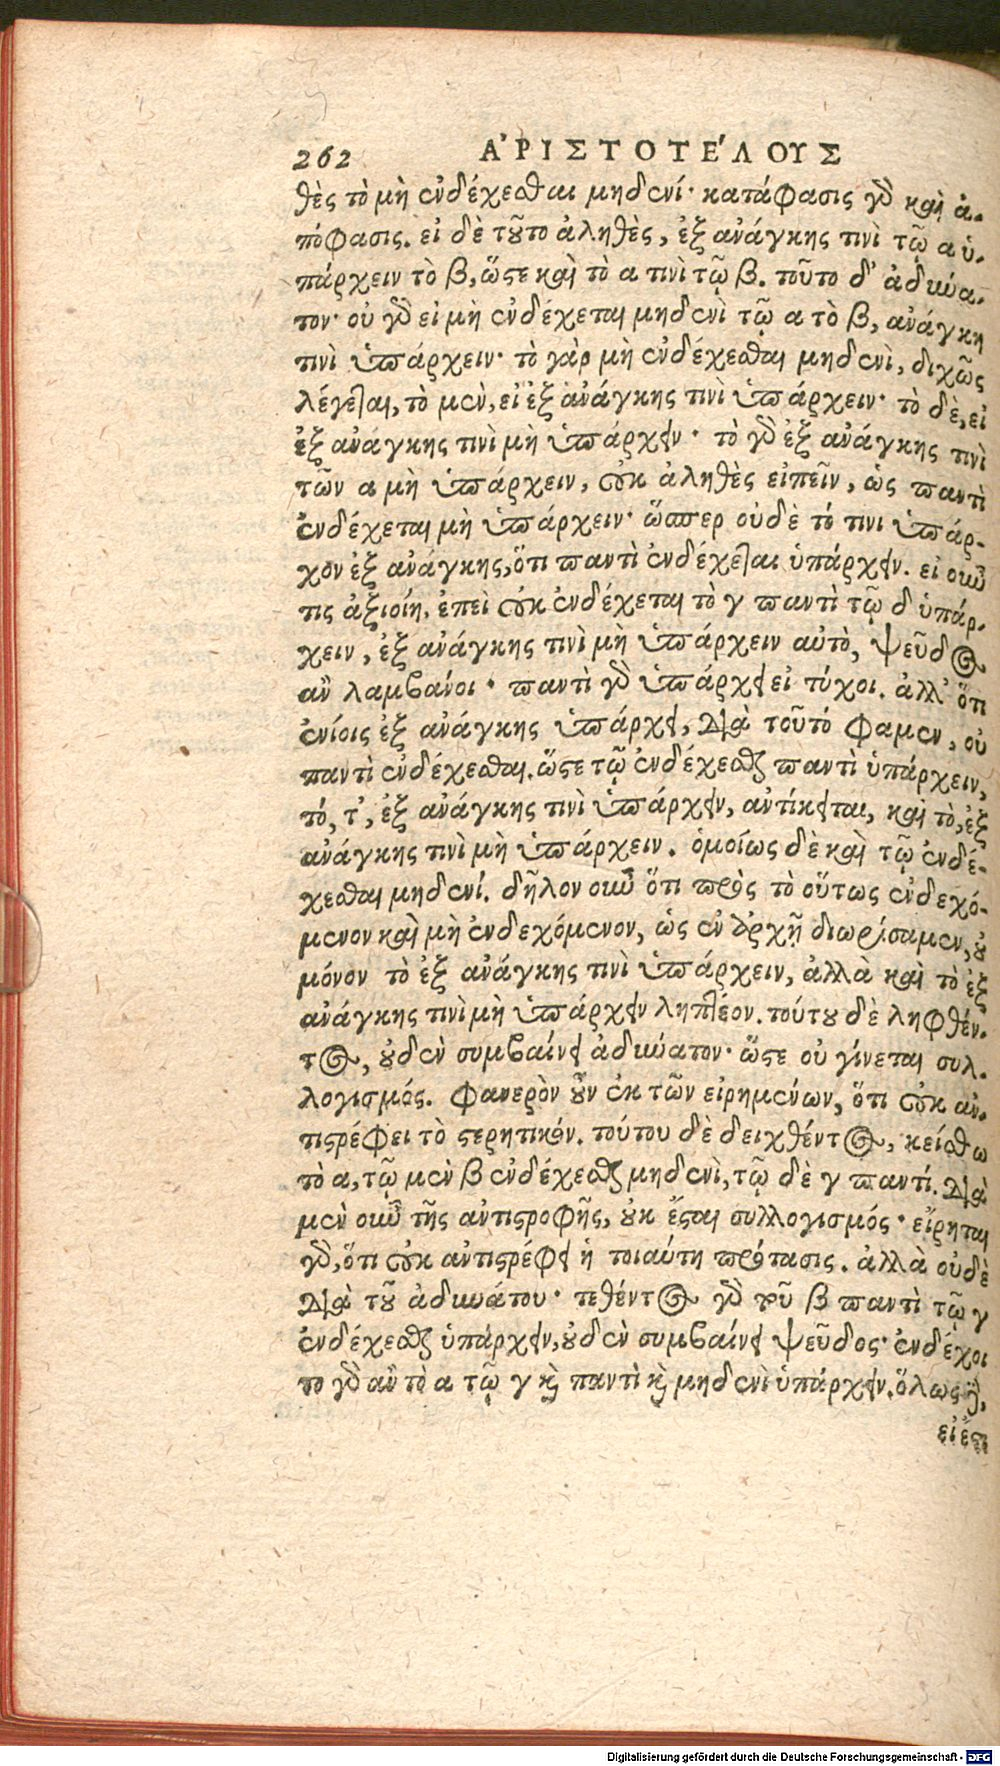 262 ἈΡΙΣΤΟΤΈΛΟΥΣ
θὲς τὸ μὴ ἐνδέχεσθαι μηδενί· κατάφασις γὸ καὶ ἀ-
πόφασις. εἰ δὲ τοῦτο ἀληθὲς, ἐξ ἀνάγκης τινὶ τῷ α ὑ-
πάρχειν τὸ β, ὥστε καὶ τὸ α τινὶ τῷ β. τοῦτο δ’ ἀδύνα-
τον· οὐ γὸ εἰ μὴ ἐνδέχεται μηδενὶ τῷ α τὸ β, ἀνάγκη
τινὶ ὑπάρχειν· τὸ γὰρ μὴ ἐνδέχεσθαι μηδενὶ, διχῶς
λέγεται, τὸ μὲν, εἰ ἐξ ἀνάγκης τινὶ ὑπάρχειν· τὸ δὲ, εἰ
ἐξ ἀνάγκης τινὶ μὴ ὑπάρχειν· τὸ γὸ ἐξ ἀνάγκης τινὶ
τῶν α μὴ ὑπάρχειν, οὐκ ἀληθὲς εἰπεῖν, ὡς παντὶ
ἐνδέχεται μὴ ὑπάρχειν· ὥσπερ οὐδὲ τό τινι ὑπάρ-
χον ἐξ ἀνάγκης, ὅτι παντὶ ἐνδέχεται ὑπάρχειν. εἰ οὖν
τις ἀξιοίη, ἐπεὶ οὐκ ἐνδέχεται τὸ γ παντὶ τῷ δ ὑπάρ-
χειν, ἐξ ἀνάγκης τινὶ μὴ ὑπάρχειν αὐτὸ, ψεῦδος
ἂν λαμβάνοι· παντὶ γὸ ὑπάρχει εἰ τύχοι. ἀλλ’ ὅτι
ἐνίοις ἐξ ἀνάγκης ὑπάρχει, διὰ τοῦτό φαμεν, οὐ
παντὶ ἐνδέχεσθαι. ὥστε τῷ ἐνδέχεσθαι παντὶ ὑπάρχειν,
τό, τ’, ἐξ ἀνάγκης τινὶ ὑπάρχειν, ἀντίκειται, καὶ τὸ, ἐξ
ἀνάγκης τινὶ μὴ ὑπάρχειν. ὁμοίως δὲ καὶ τῷ ἐνδέ-
χεσθαι μηδενί. δῆλον οὖν ὅτι πρὸς τὸ οὕτως ἐνδεχό-
μενον καὶ μὴ ἐνδεχόμενον, ὡς ἐν ἀρχῇ διωρίσαμεν, οὐ
μόνον τὸ ἐξ ἀνάγκης τινὶ ὑπάρχειν, ἀλλὰ καὶ τὸ ἐξ
ἀνάγκης τινὶ μὴ ὑπάρχειν ληπτέον. τούτου δὲ ληφθέν-
τος, οὐδὲν συμβαίνει ἀδύνατον· ὥστε οὐ γίνεται συλ-
λογισμός. Φανερὸν οὖν ἐκ τῶν εἰρημένων, ὅτι οὐκ ἀν-
τιστρέφει τὸ στερητικόν. τούτου δὲ δειχθέντος, κείσθω
τὸ α, τῷ μὲν β ἐνδέχεσθαι μηδενὶ, τῷ δὲ γ παντί. διὰ
μὲν οὖν τῆς ἀντιστροφῆς, οὐκ ἔσται συλλογισμός· εἴρηται
γὸ, ὅτι οὐκ ἀντιστρέφει ἡ τοιαύτη πρότασις. ἀλλὰ οὐδὲ
διὰ τοῦ ἀδυνάτου· τεθέντος γὸ τοῦ β παντὶ τῷ γ
ἐνδέχεσθαι ὑπάρχειν, οὐδὲν συμβαίνει ψεῦδος· ἐνδέχοι
το γὸ ἂν τὸ α τῷ γ καὶ παντὶ καὶ μηδενὶ ὑπάρχειν. ὅλως δ’,
εἰ ἔστι
Digitalisierung gefördert durch die Deutsche Forschungsgemeinschaft - DFG